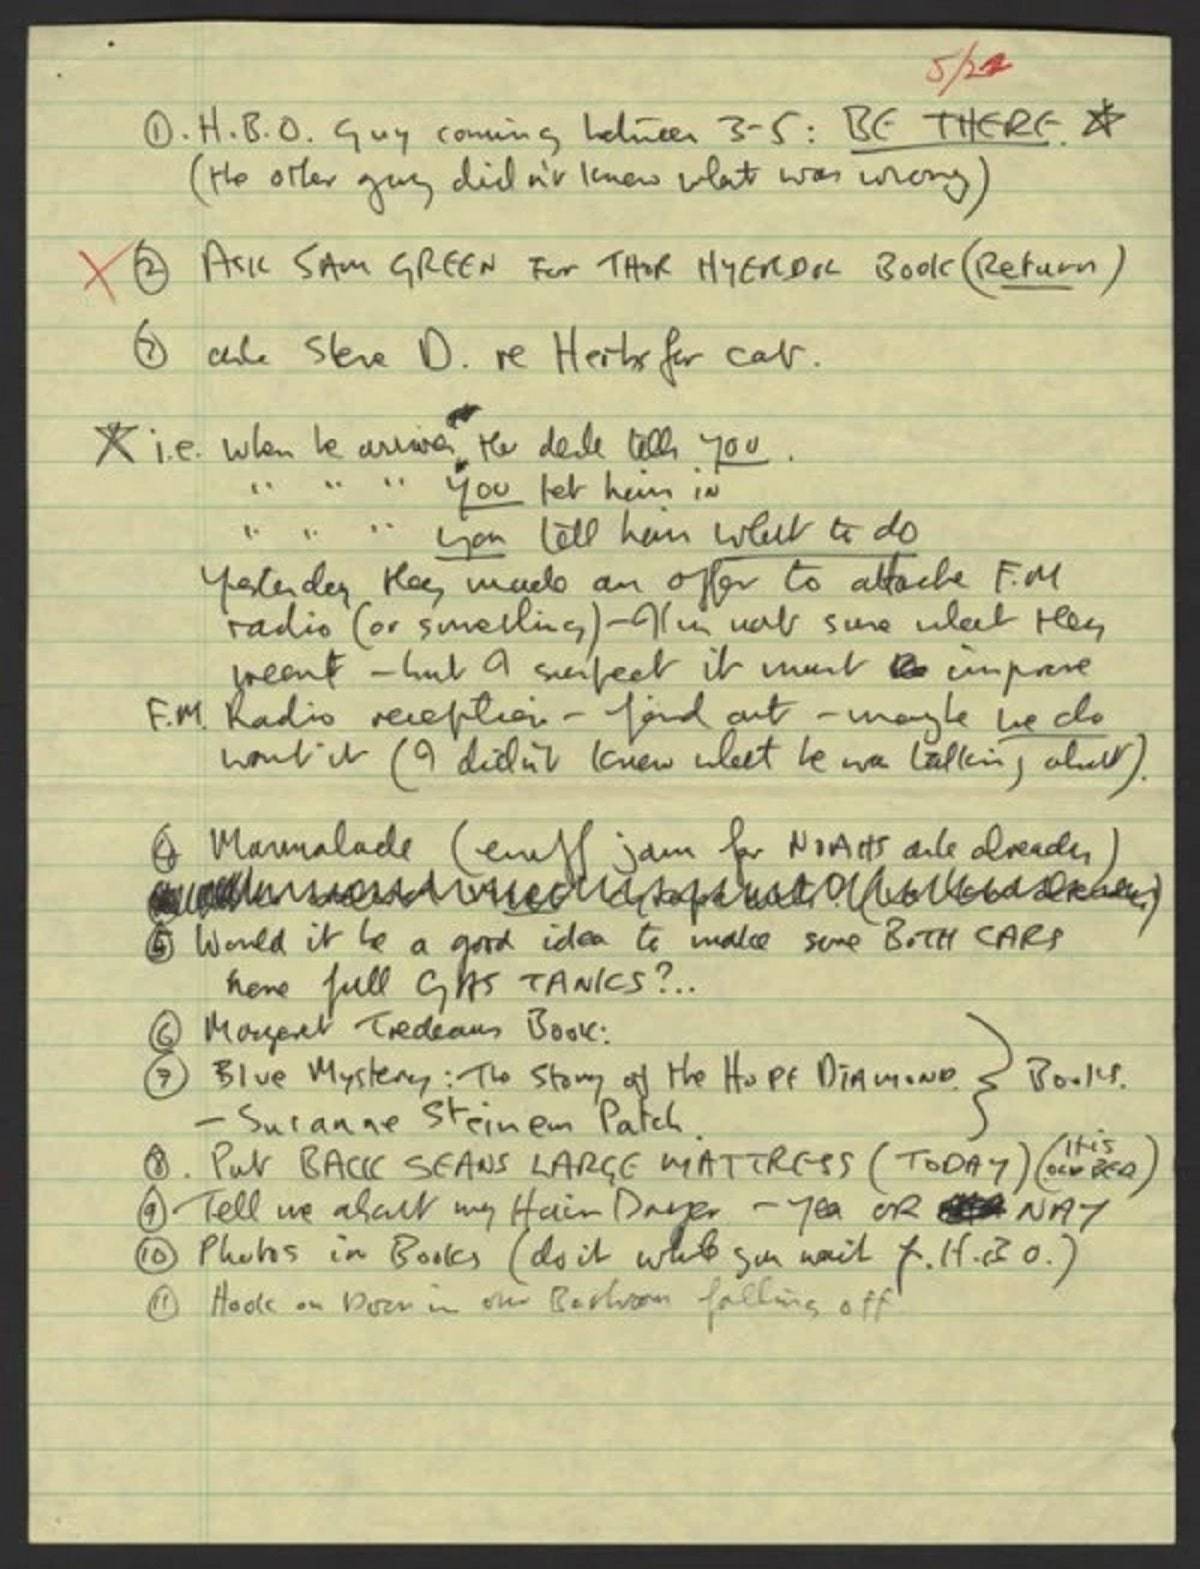 5/22
① . H.B.O. Guy coming between 3-5: BE THERE. ☆
(the other guy didn't know what was wrong)
X ② ASK SAM GREEN For THOR HYERDOL Book (Return)
③ ask Steve D. re Herbs for cat.
☆ i.e. when he arrives the desk tells you.
" " " You let him in
" " " you tell him what to do
Yesterday they made an offer to attache F.M
radio (or something) – I'm not sure what they
meant – but I suspect it must improve
F.M. Radio reception – find out – maybe we do
want it (I didn't know what he was talking about).
④ Marmalade (enuff jam for NOAHS ark already)
⑤ Would it be a good idea to make sure BOTH CARS
have full GAS TANKS?..
⑥ Margaret Trudeaus Book:
⑦ Blue Mystery: The Story of the HOPE DIAMOND } Books.
– Suzanne Steinem Patch.
⑧. Put BACK SEANS LARGE MATTRESS (TODAY) (it is our BED)
⑨ Tell me about my Hair Dryer – Yea OR NAY
⑩ Photos in Books (do it while you wait f. H.B O.)
⑪ Hook on Door in our Bathroom falling off